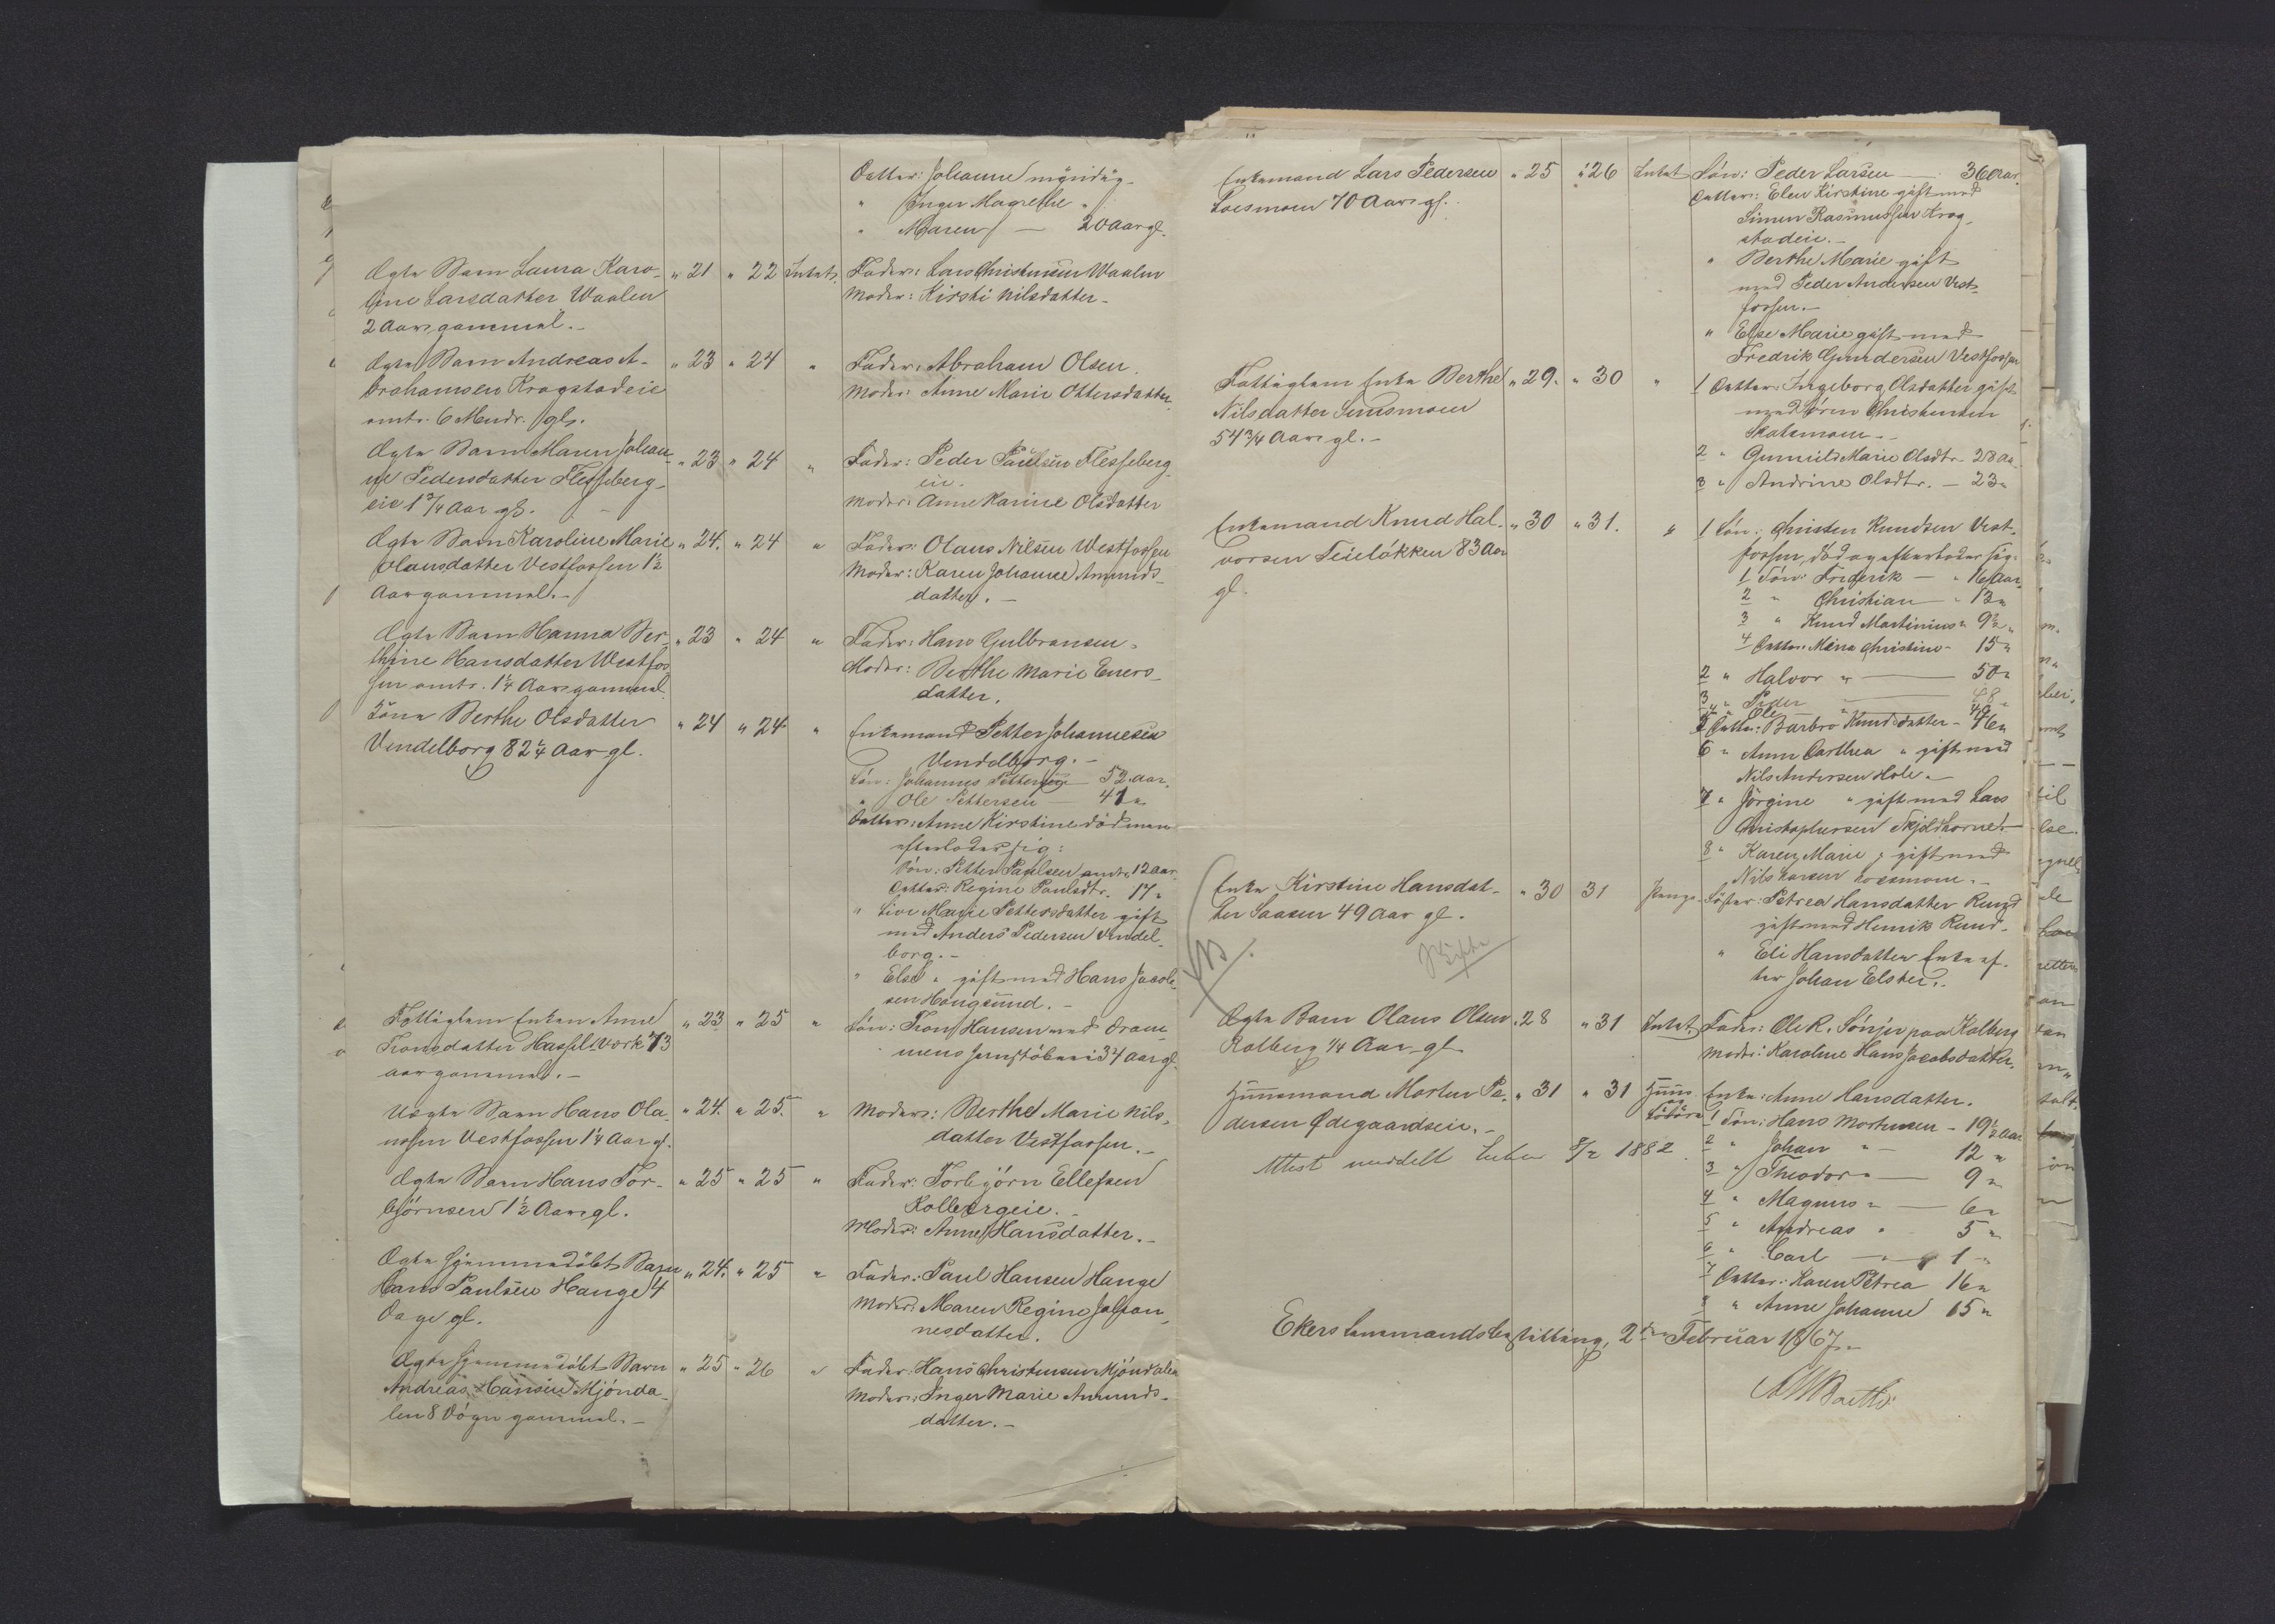 Datter: Johanne myndig
" Inger Magrethe "
" Maren — 20 Aar gl.
Ægte Barn Laura Karo- " 21 " 22 Intet. Fader: Lars Christensen Waalen
line Larsdatter Waalen Moder: Kirsti Nilsdatter
2 Aar gammel.
Ægte Barn Andreas A- " 23 " 24 " Fader: Abraham Olsen
brahamsen Krogstadeie Moder: Anne Marie Ottersdatter
omtr. 6 Mndr. gl.
Ægte Barn Maren Johan- " 23 " 24 " Fader: Peder Paulsen Flesseberg-
ne Pedersdatter Flesseberg- eie.
eie 1 3/4 Aar gl. Moder: Anne Karine Olsdatter
Ægte Barn Karoline Marie " 24. " 24 " Fader: Olaus Nilsen Westfossen
Olausdatter Vestfossen 1½ Moder: Karen Johanne Amunds-
Aar gammel. datter.
Ægte Barn Hanna Ber- " 23 " 24 " Fader: Hans Gulbransen
thine Hansdatter Westfos- Moder: Berthe Marie Eners-
sen omtr. 1¼ Aar gammel datter.
Kone Berthe Olsdatter " 24 " 24 " Enkemand Petter Johannesen
Vendelborg 82¼ Aar gl. Vendelborg.
Søn: Johannes Pettersen — 52 Aar.
" Ole Pettersen — 41 "
Datter: Anne Kirstine død men
efterlader sig:
Søn: Petter Paulsen omtr. 12 Aar
Datter: Regine Paulsdtr. 17 "
" Live Marie Pettersdatter gift
med Anders Pedersen Vendel-
borg.
" Else " gift med Hans Jacob-
sen Hougsund.
Fattiglem Enken Anne " 23 " 25 " Søn: Trons Hansen ved Dram-
Tronsdatter Hassel Værk 73 mens Jernstøberi 34 Aar gl.
Aar gammel.
Uægte Barn Hans Ola- " 24. " 25. " Moder: Berthe Marie Nils-
ussen Vestfossen 1¼ Aar gl. datter Vestfossen.
Ægte Barn Hans Tor- " 25 " 25 " Fader: Torbjørn Ellefsen
bjørnsen 1½ Aar gl. Kolbergeie.
Moder: Anne Hansdatter.
Ægte hjemmedøbt Barn " 24. " 25 " Fader: Paul Hansen Hauge
Hans Paulsen Hauge 4 Moder: Maren Regine Johan-
Dage gl. nesdatter.
Ægte hjemmedøbt Barn " 25 " 26 " Fader: Hans Christensen Mjøndalen
Andreas Hansen Mjønda- Moder: Inger Marie Amunds-
len 8 Døgn gammel. datter.
Enkemand Lars Pedersen " 25 " 26 Intet Søn: Peder Larsen — 36 Aar.
Loesmoen 70 Aar gl. Datter: Elen Kirstine gift med
Simen Rasmussen Krog-
stadeie.
" Berthe Marie gift
med Peder Andersen Vest-
fossen.
" Else Marie gift med
Fredrik Gundersen Vestfossen
Fattiglem Enke Berthe " 29. " 30 " 1 Datter: Ingeborg Olsdatter gift
Nilsdatter 54 3/4 Aar gl. med Søren Christensen
2 " Gunnild Marie Olsdtr. 28 Aar
3 " Andrine Olsdtr. — 23 "
Enkemand Knud Hal- " 30 " 31. " 1 Søn: Christen Knudsen Vest-
vorsen Teieløkken 83 Aar fossen, død og efterlader sig:
gl. 1 Søn: Frederik — 16 Aar
2 " Christian " 13 "
3 " Knud Martinius " 9½ "
4 Datter: Mina Christine 15 "
2 " Halvor " — 50 "
3 " Peder — 48 "
4 " Ole
5 Datter: Barbro Knudsdatter — 46 "
6 " Anne Dorthea " gift med
Nils Andersen Hole.
7 " Jørgine " gift med Lars
Christophersen Skjoldhorne.
8 " Karen Marie " gift med
Nils Larsen Loesmoen.
Enke Kirstine Hansdat- " 30 31 Penge Søster: Petrea Hansdatter Rund
ter Saasen 49 Aar gl. gift med Henrik Rund.
Skifte " Eli Hansdatter Enke ef-
ter Johan Elster.
Ægte Barn Olaus Olsen " 28 " 31 Intet. Fader: Ole R. Sønju paa Kolberg
Kolberg 1/4 Aar gl. Moder: Karoline Hans Jacobsdatter.
Huusmand Morten Pe- " 31 " 31 Huus og Løsøre Enke: Anne Hansdatter.
dersen Ødegaardseie. 1 Søn: Hans Mortensen — 19½ Aar
Attest meddelt Enken 8/2 1882. 2 " Johan " — 12 "
3 " Theodor " — 9 "
4 " Magnus " — 6 "
5 " Andreas " 5 "
6 " Carl — " 1 "
7 Datter: Karen Petrea 16 "
8 " Anne Johanne 15 "
Ekers Lensmandsbestilling, 2den Februar 1867.